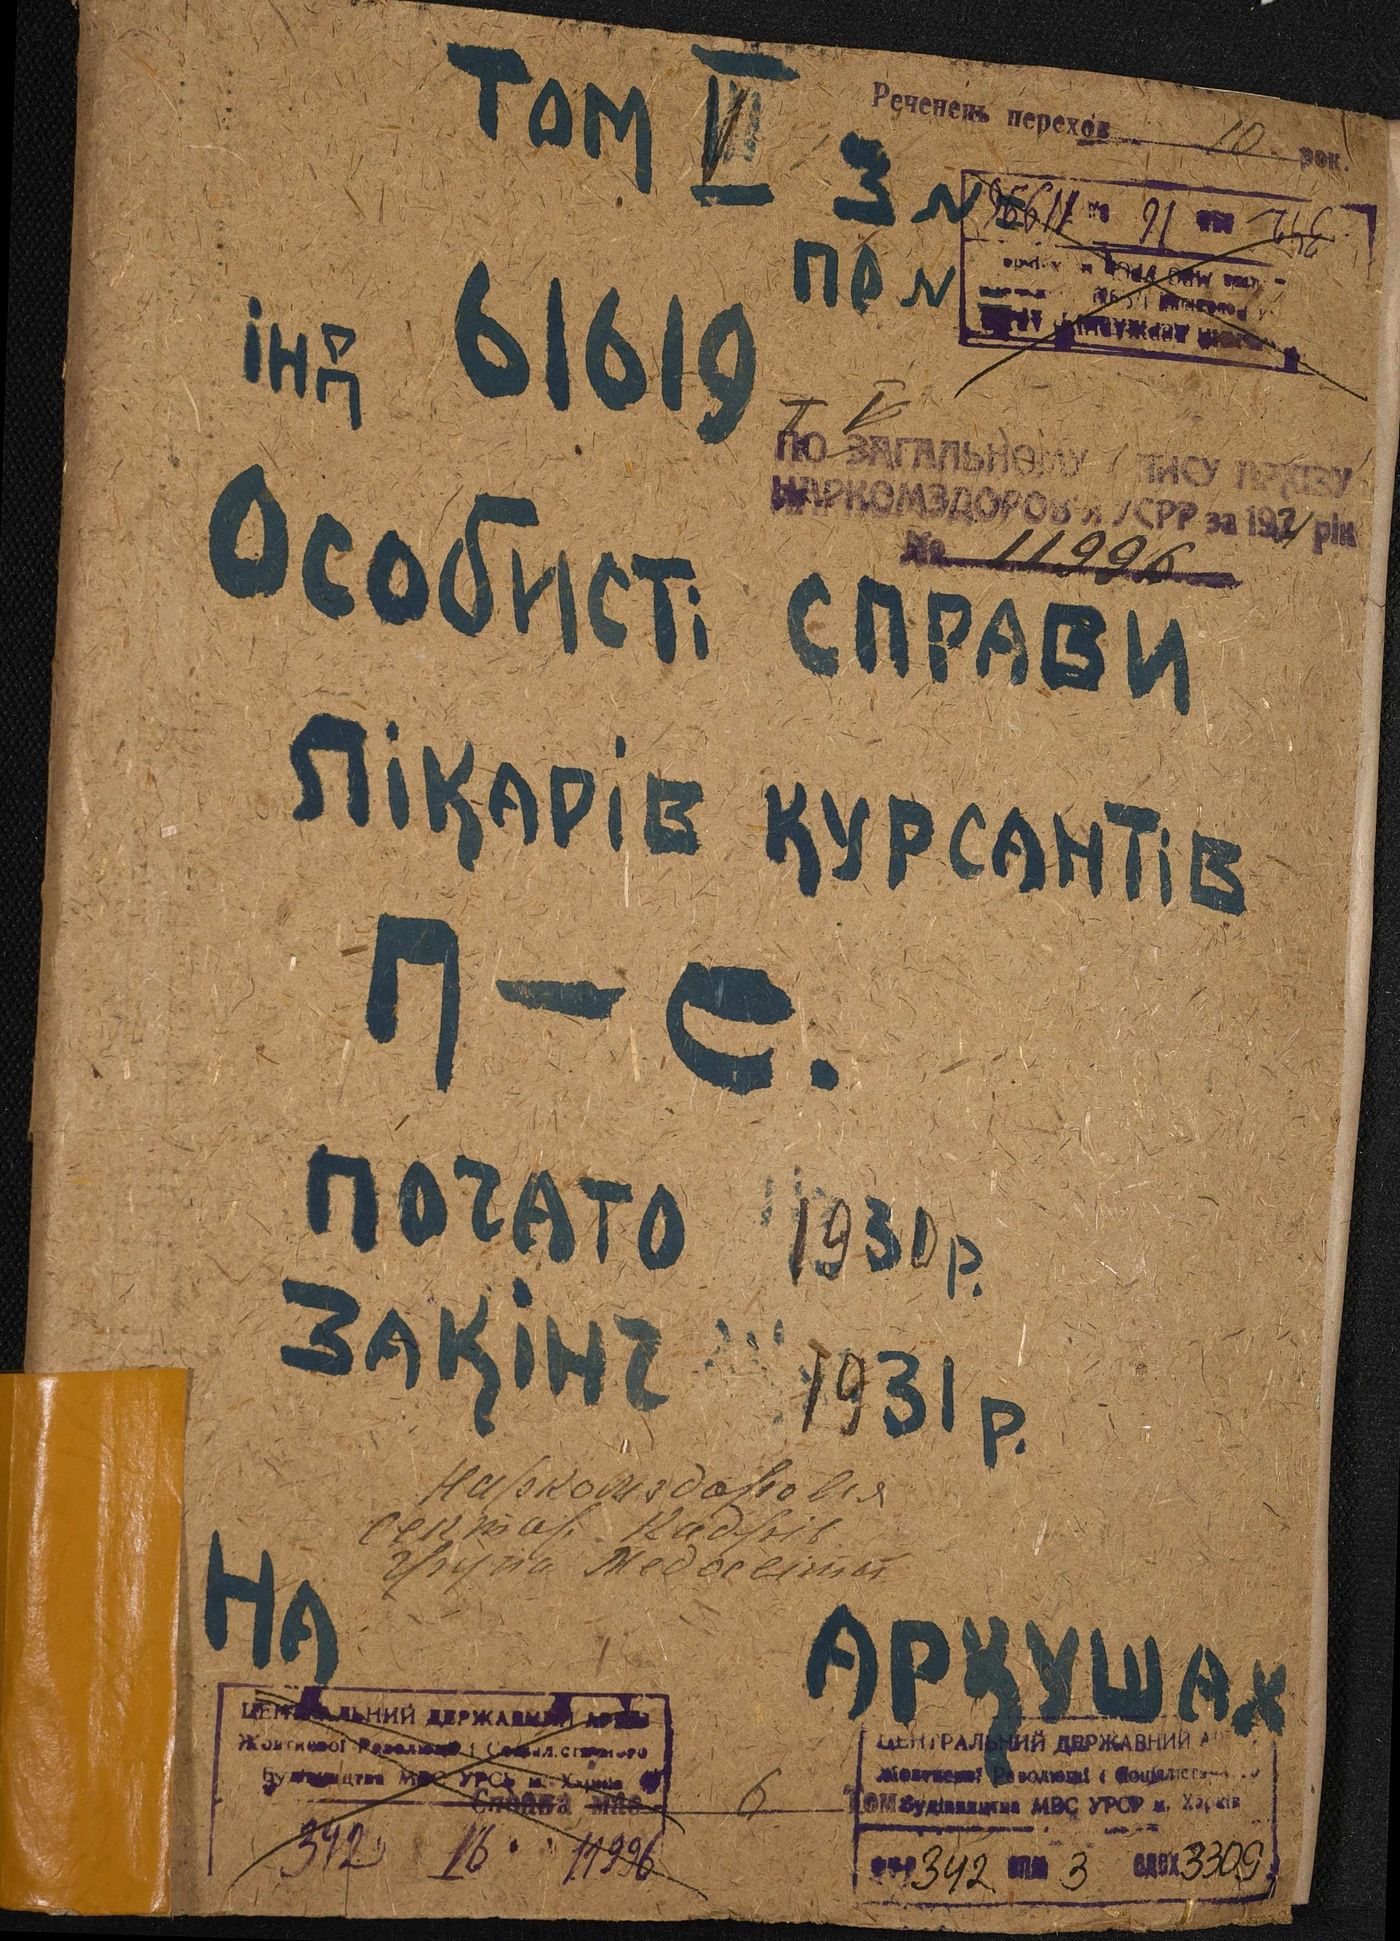 Том V З №
Реченець перехов 10 рок.
пр №
інд 61619
11996 № 16 342
I V
ПО ЗАГАЛЬНОМУ ОПИСУ АРХІВУ
НАРКОМЗДОРОВ'Я УСРР за 1931 рік
№ 11996
Особисті справи
лікарів курсантів
П — С.
почато 1930 р.
закінч 1931 р.
Наркомздоровія
сектор Кадрів
група Медосвіти
На аркушах
ЦЕНТРАЛЬНИЙ ДЕРЖАВНИЙ АРХІВ
Жовтневої Революції і Соціалістичного
Будівництва МВС УРСР м. Харків
Справа має 6 Том
342 16 11996
ЦЕНТРАЛЬНИЙ ДЕРЖАВНИЙ АР
Жовтневої Революції і Соціалістичного
Будівництва МВС УРСР м. Харків
ФОР 342 ОПИ 3 ОДЗХ 3309